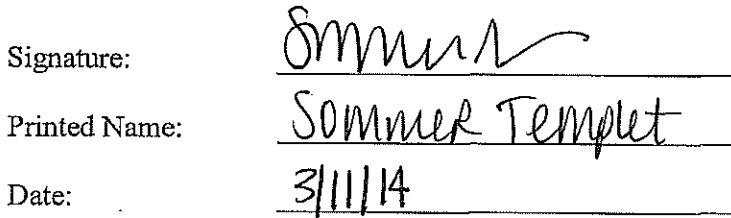 Signature: Sommer
Printed Name: Sommer Templet
Date: 3/11/14